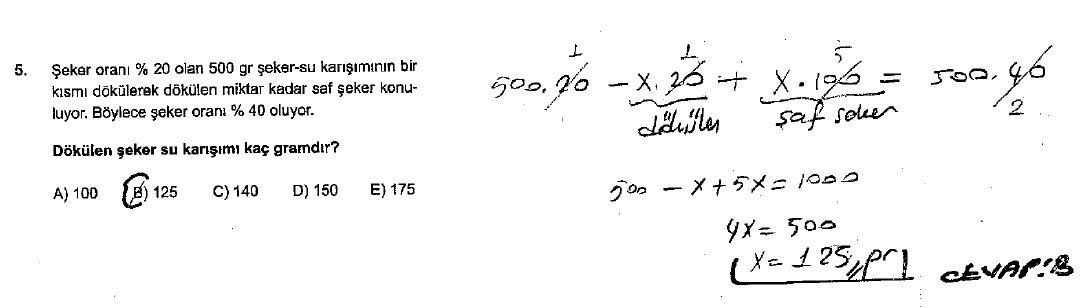 5. Şeker oranı % 20 olan 500 gr şeker-su karışımının bir
kısmı dökülerek dökülen miktar kadar saf şeker konu-
luyor. Böylece şeker oranı % 40 oluyor.
Dökülen şeker su karışımı kaç gramdır?
A) 100 B) 125 C) 140 D) 150 E) 175
1 1 5
500.20 - x.20 + x.100 = 500.40
2
dökülen saf şeker
500 - x + 5x = 1000
4x = 500
x = 125 gr
CEVAP: B